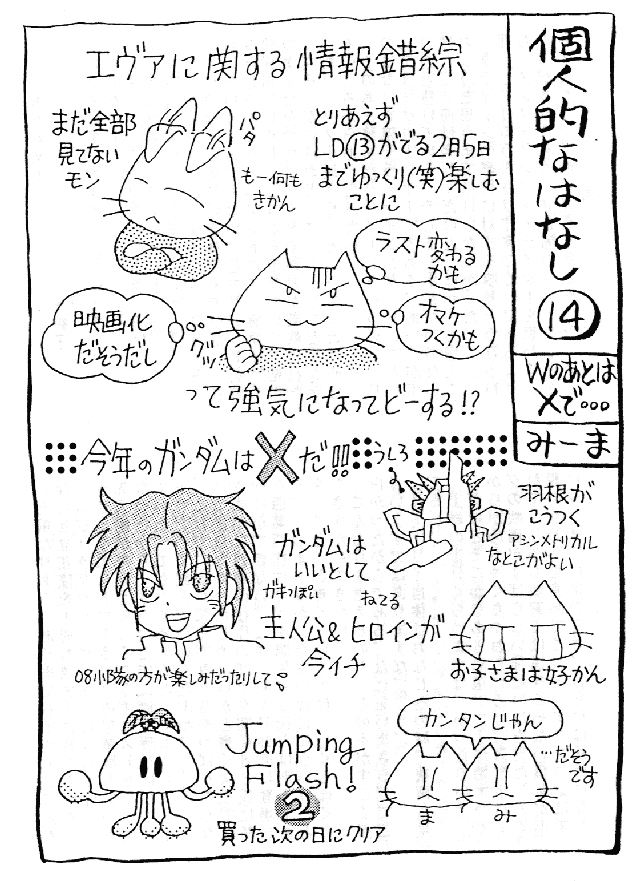 個人的なはなし⑭
Wのあとは
Xで…
みーま
エヴァに関する情報錯綜
まだ全部
見てない
モン
パタ
も一何も
きかん
とりあえず
LD⑬がでる2月5日
までゆっくり(笑)楽しむ
ことに
ラスト変わる
かも
オマケ
つくかも
映画化
だそうだし
グッ
って強気になってどーする!?
今年のガンダムはXだ!!
うしろ
羽根が
こうつく
アシンメトリカル
なとこがよい
ガンダムは
いいとして
ガキっぽい
ねてる
主人公&ヒロインが
今イチ
お子さまは好かん
08小隊の方が楽しみだったりして
Jumping
Flash!
2
買った次の日にクリア
カンタンじゃん
…だそう
です
ま
み